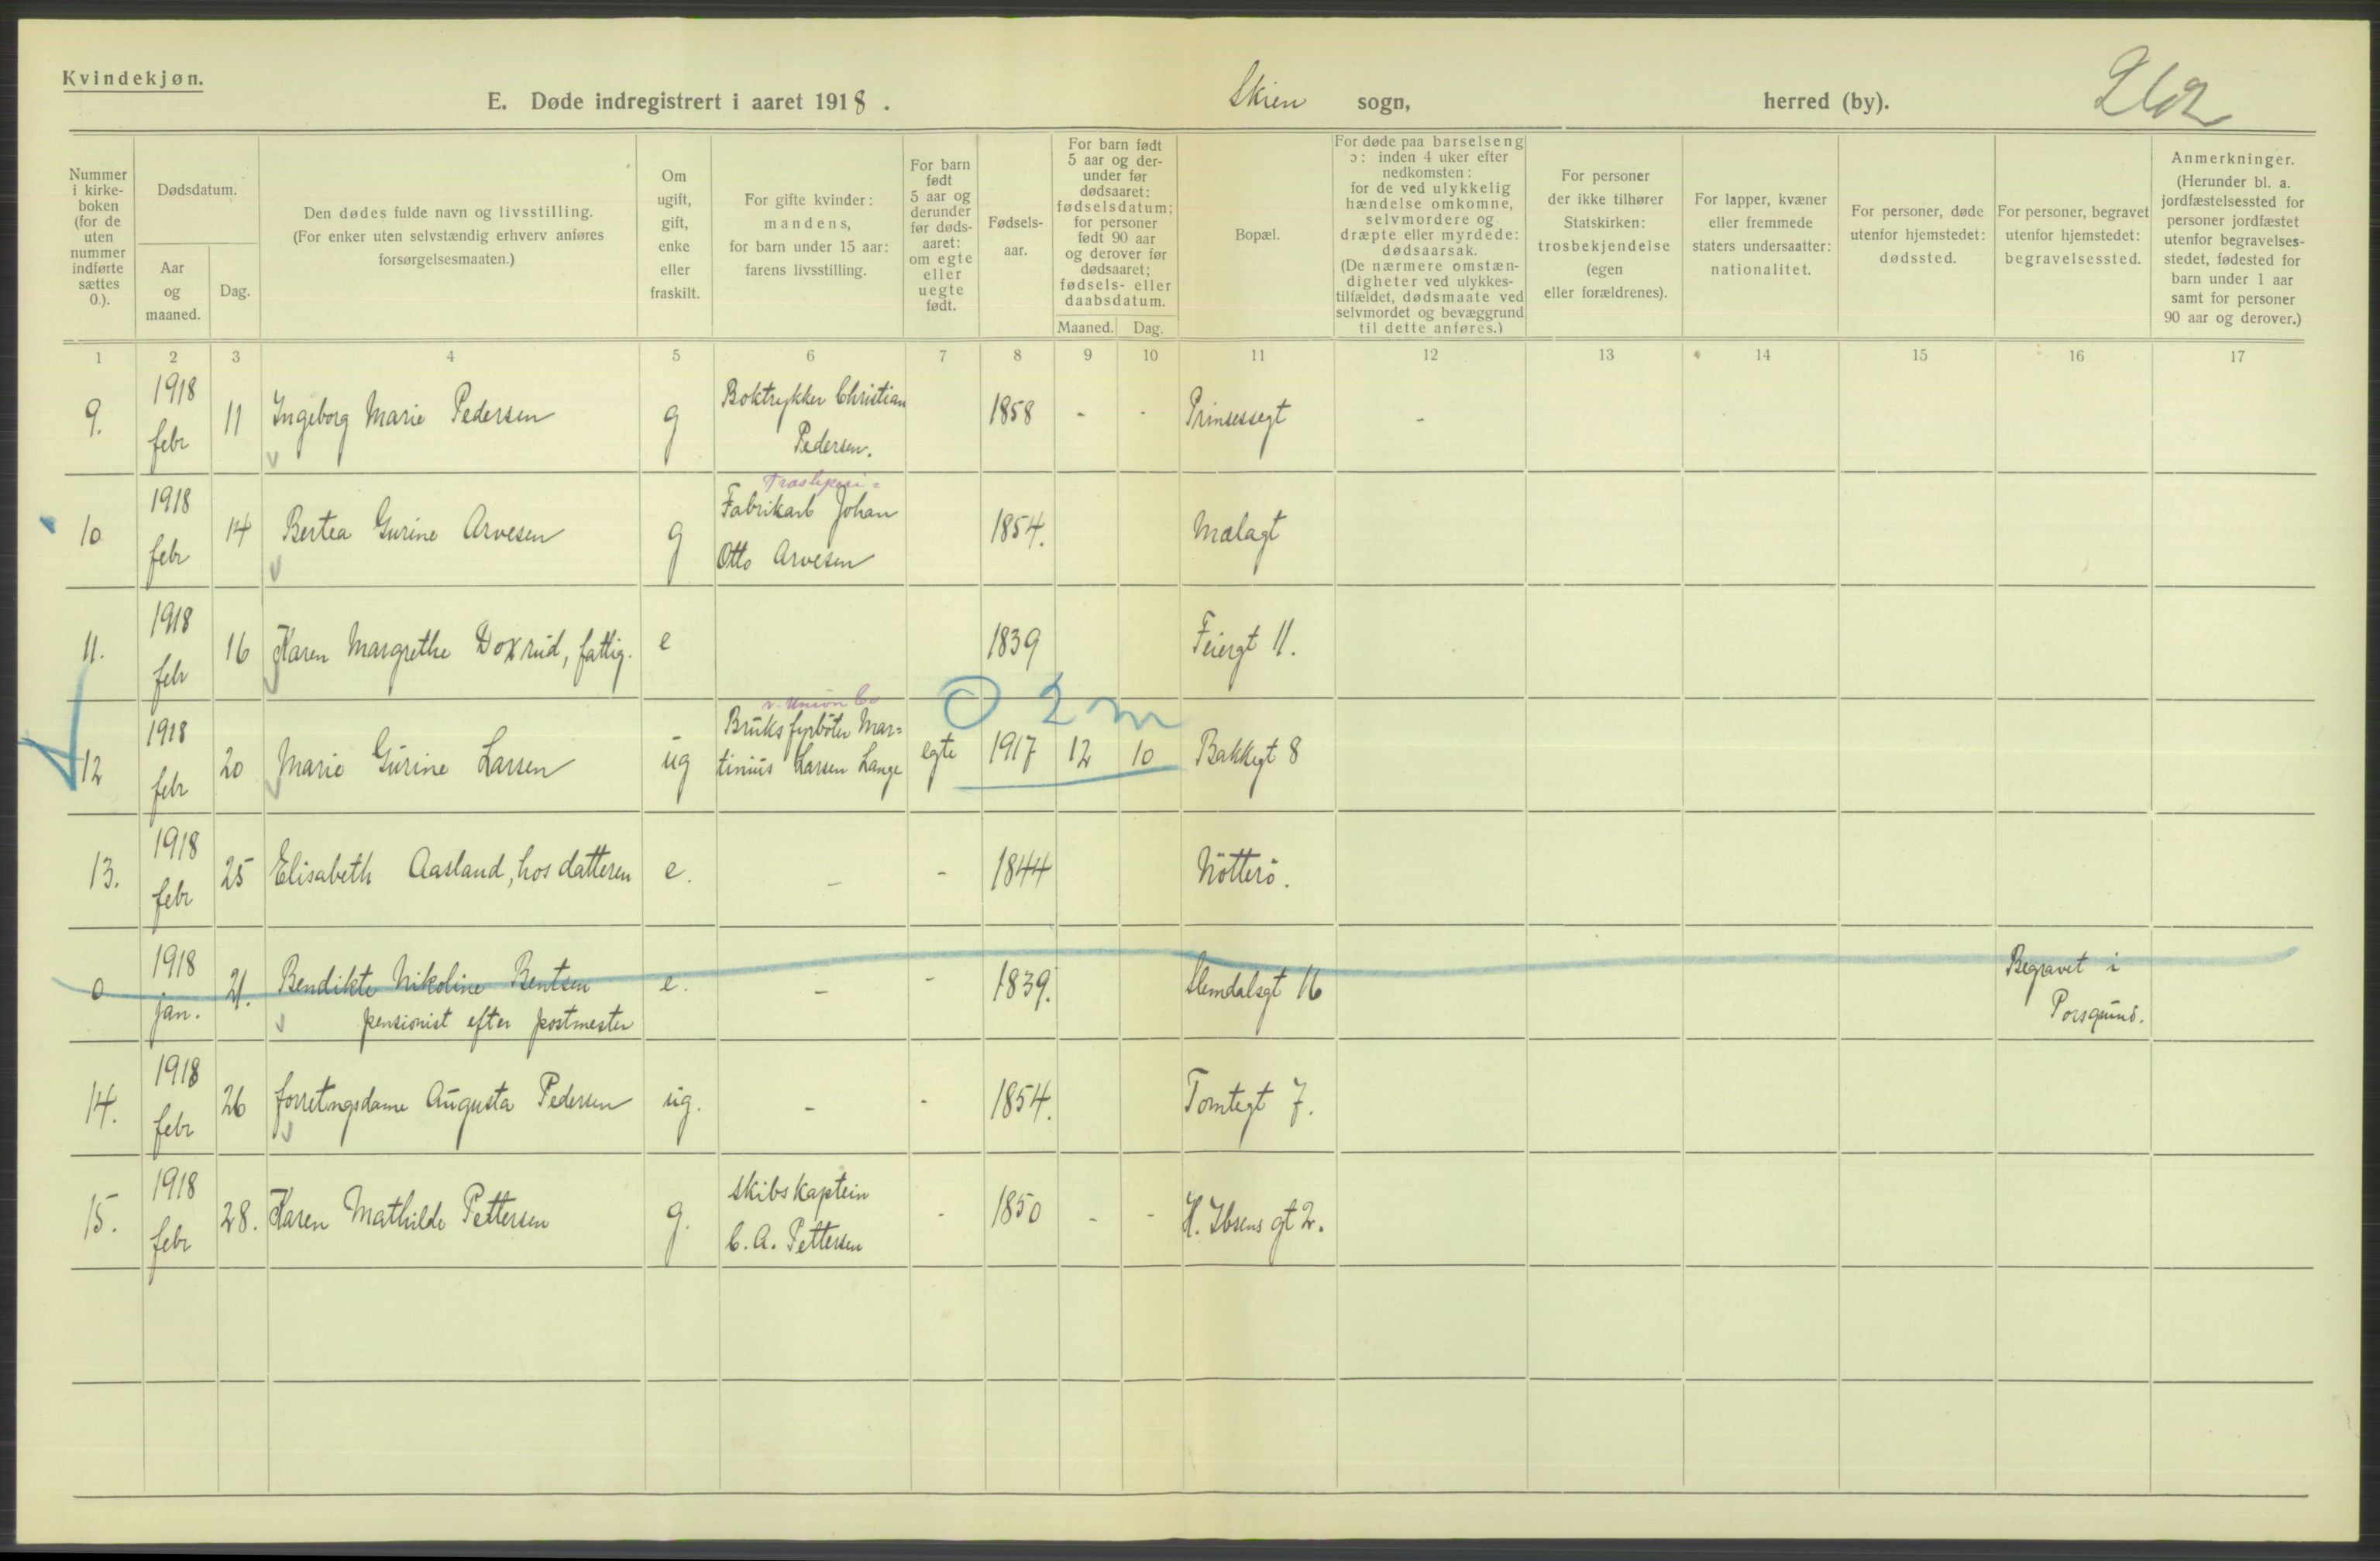 Kvindekjøn.
E. Døde indregistrert i aaret 1918.
Skien sogn,
herred (by).
Nummer
i kirke-
boken
(for de
uten
nummer
indførte
sættes
0.).
Dødsdatum.
Aar
og
maaned.
Dag.
Den dødes fulde navn og livsstilling.
(For enker uten selvstændig erhverv anføres
forsørgelsesmaaten.)
Om
ugift,
gift,
enke
eller
fraskilt.
For gifte kvinder:
mandens,
for barn under 15 aar:
farens livsstilling.
For barn
født
5 aar og
derunder
før døds-
aaret:
om egte
eller
uegte
født.
Fødsels-
aar.
For barn født
5 aar og der-
under før
dødsaaret:
fødselsdatum;
for personer
født 90 aar
og derover før
dødsaaret;
fødsels- eller
daabsdatum.
Maaned. Dag.
Bopæl.
For døde paa barselseng
ɔ: inden 4 uker efter
nedkomsten:
for de ved ulykkelig
hændelse omkomne,
selvmordere og
dræpte eller myrdede:
dødsaarsak.
(De nærmere omstæn-
digheter ved ulykkes-
tilfældet, dødsmaate ved
selvmordet og bevæggrund
til dette anføres.)
For personer
der ikke tilhører
Statskirken:
trosbekjendelse
(egen
eller forældrenes).
For lapper, kvæner
eller fremmede
staters undersaatter:
nationalitet.
For personer, døde
utenfor hjemstedet:
dødssted.
For personer, begravet
utenfor hjemstedet:
begravelsessted.
Anmerkninger.
(Herunder bl. a.
jordfæstelsessted for
personer jordfæstet
utenfor begravelses-
stedet, fødested for
barn under 1 aar
samt for personer
90 aar og derover.)
1 2 3 4 5 6 7 8 9 10 11 12 13 14 15 16 17
9. 1918 febr 11 Ingeborg Marie Pedersen g Boktrykker Christian 1858 - - Prinsessegt -
Pedersen.
10 1918 febr 14 Bertea Gurine Arvesen g Fabrikarb Johan 1854. Mælagt
Otto Arvesen
11. 1918 febr 16 Karen Margrethe Doxrud, fattig. e 1839 Feiergt 11.
v. Union Co
O 2 m
12 1918 febr 20 Marie Gurine Larsen ug Bruksfyrbøter Mar= egte 1917 12 10 Bakkegt 8
tinius Larsen Lange
13. 1918 febr 25 Elisabeth Aasland, hos datteren e. - - 1844 Nötterö.
0 1918 jan. 21. Bendikte Nikoline Bentsen e. - - 1839. Slemdalsgt 16 Begravet i
pensionist efter postmester Porsgrund.
14. 1918 febr 26 forretngsdame Augusta Pedersen ug. - - 1854. Tomtegt 7.
15. 1918 febr 28. Karen Mathilde Pettersen g. skibskaptein - 1850 - - H. Ibsens gt 2.
C. A. Pettersen